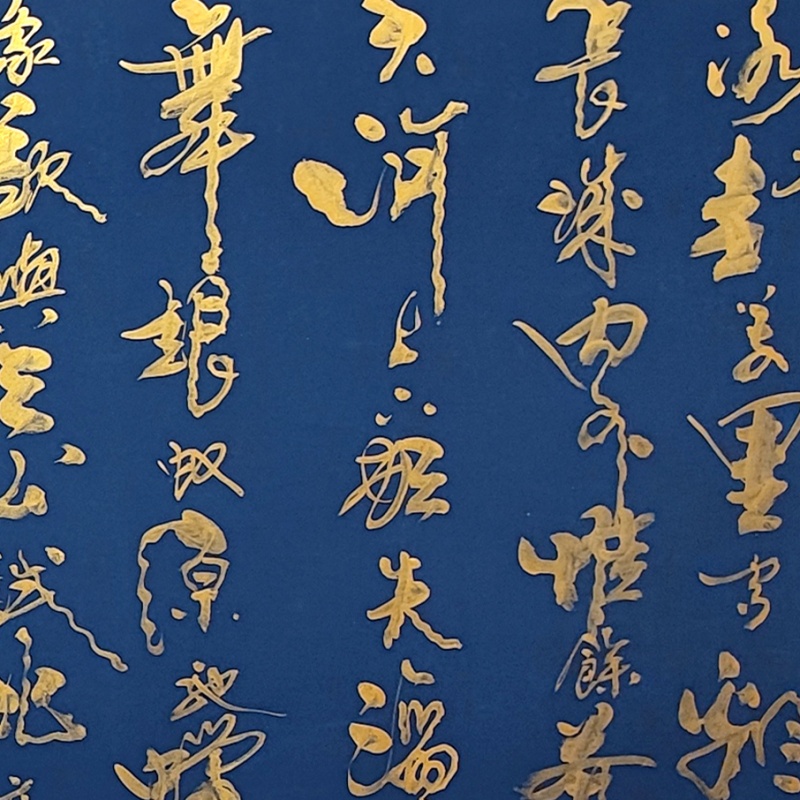 冰封萬里雪飄
長城內外惟餘莽
大河上下頓失滔
舞銀蛇原馳蠟
象欲與天公試比